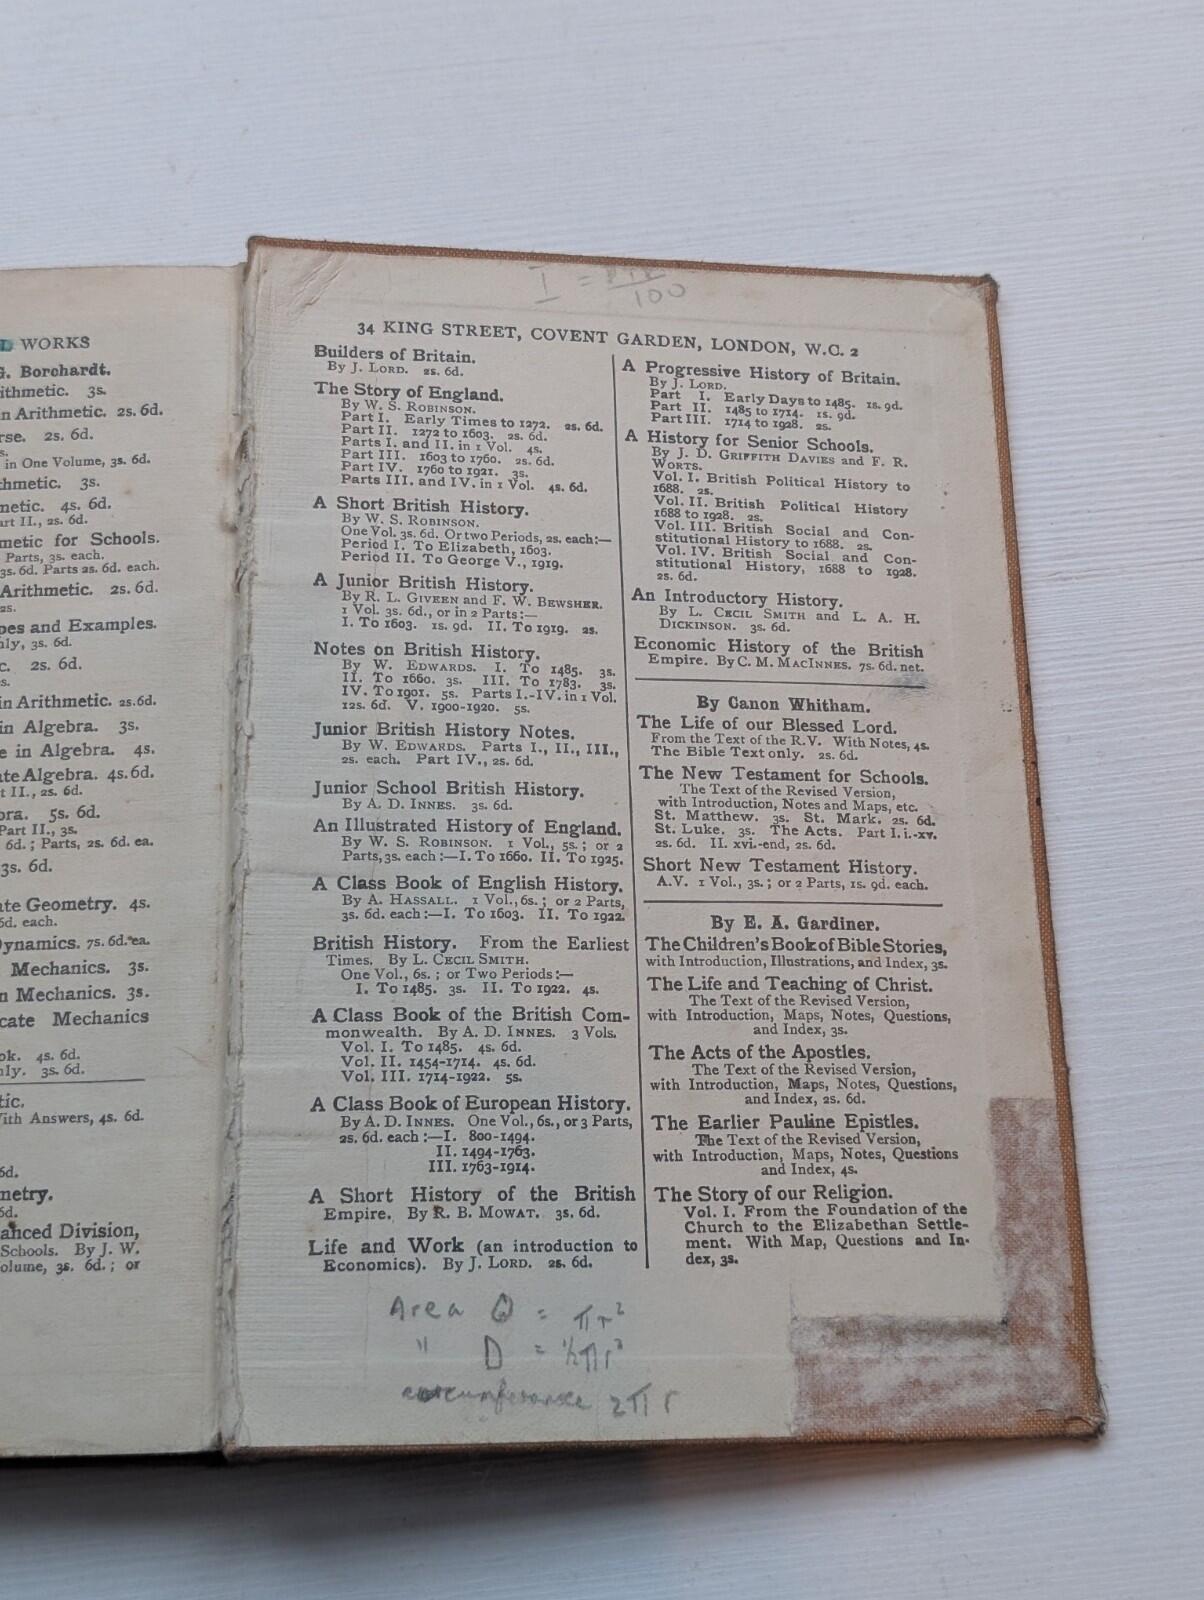 WORKS
G. Borchardt.
ithmetic. 3s.
n Arithmetic. 2s. 6d.
rse. 2s. 6d.
s.
in One Volume, 3s. 6d.
hmetic. 3s.
metic. 4s. 6d.
art II., 2s. 6d.
metic for Schools.
Parts, 3s. each.
3s. 6d. Parts 2s. 6d. each.
Arithmetic. 2s. 6d.
2s.
pes and Examples.
nly, 3s. 6d.
c. 2s. 6d.
s.
in Arithmetic. 2s. 6d.
in Algebra. 3s.
e in Algebra. 4s.
ate Algebra. 4s. 6d.
t II., 2s. 6d.
bra. 5s. 6d.
Part II., 3s.
6d. ; Parts, 2s. 6d. ea.
3s. 6d.
ate Geometry. 4s.
6d. each.
Dynamics. 7s. 6d. ea.
Mechanics. 3s.
n Mechanics. 3s.
cate Mechanics
ok. 4s. 6d.
nly. 3s. 6d.
tic.
With Answers, 4s. 6d.
6d.
metry.
6d.
anced Division,
Schools. By J. W.
olume, 3s. 6d. ; or
I = /100
34 KING STREET, COVENT GARDEN, LONDON, W.C. 2
Builders of Britain.
By J. LORD. 2s. 6d.
The Story of England.
By W. S. ROBINSON.
Part I. Early Times to 1272. 2s. 6d.
Part II. 1272 to 1603. 2s. 6d.
Parts I. and II. in 1 Vol. 4s.
Part III. 1603 to 1760. 2s. 6d.
Part IV. 1760 to 1921. 3s.
Parts III. and IV. in 1 Vol. 4s. 6d.
A Short British History.
By W. S. ROBINSON.
One Vol. 3s. 6d. Or two Periods, 2s. each:—
Period I. To Elizabeth, 1603.
Period II. To George V., 1919.
A Junior British History.
By R. L. GIVEEN and F. W. BEWSHER.
1 Vol. 3s. 6d., or in 2 Parts:—
I. To 1603. 1s. 9d. II. To 1919. 2s.
Notes on British History.
By W. EDWARDS. I. To 1485. 3s.
II. To 1660. 3s. III. To 1783. 3s.
IV. To 1901. 5s. Parts I.-IV. in 1 Vol.
12s. 6d. V. 1900-1920. 5s.
Junior British History Notes.
By W. EDWARDS. Parts I., II., III.,
2s. each. Part IV., 2s. 6d.
Junior School British History.
By A. D. INNES. 3s. 6d.
An Illustrated History of England.
By W. S. ROBINSON. 1 Vol., 5s. ; or 2
Parts, 3s. each:—I. To 1660. II. To 1925.
A Class Book of English History.
By A. HASSALL. 1 Vol., 6s. ; or 2 Parts,
3s. 6d. each:—I. To 1603. II. To 1922.
British History. From the Earliest
Times. By L. CECIL SMITH.
One Vol., 6s. ; or Two Periods:—
I. To 1485. 3s. II. To 1922. 4s.
A Class Book of the British Com-
monwealth. By A. D. INNES. 3 Vols.
Vol. I. To 1485. 4s. 6d.
Vol. II. 1454-1714. 4s. 6d.
Vol. III. 1714-1922. 5s.
A Class Book of European History.
By A. D. INNES. One Vol., 6s., or 3 Parts,
2s. 6d. each:—I. 800-1494.
II. 1494-1763.
III. 1763-1914.
A Short History of the British
Empire. By R. B. MOWAT. 3s. 6d.
Life and Work (an introduction to
Economics). By J. LORD. 2s. 6d.
A Progressive History of Britain.
By J. LORD.
Part I. Early Days to 1485. 1s. 9d.
Part II. 1485 to 1714. 1s. 9d.
Part III. 1714 to 1928. 2s.
A History for Senior Schools.
By J. D. GRIFFITH DAVIES and F. R.
WORTS.
Vol. I. British Political History to
1688. 2s.
Vol. II. British Political History
1688 to 1928. 2s.
Vol. III. British Social and Con-
stitutional History to 1688. 2s.
Vol. IV. British Social and Con-
stitutional History, 1688 to 1928.
2s. 6d.
An Introductory History.
By L. CECIL SMITH and L. A. H.
DICKINSON. 3s. 6d.
Economic History of the British
Empire. By C. M. MACINNES. 7s. 6d. net.
By Canon Whitham.
The Life of our Blessed Lord.
From the Text of the R.V. With Notes, 4s.
The Bible Text only. 2s. 6d.
The New Testament for Schools.
The Text of the Revised Version,
with Introduction, Notes and Maps, etc.
St. Matthew. 3s. St. Mark. 2s. 6d.
St. Luke. 3s. The Acts. Part I. i.-xv.
2s. 6d. II. xvi.-end, 2s. 6d.
Short New Testament History.
A.V. 1 Vol., 3s. ; or 2 Parts, 1s. 9d. each.
By E. A. Gardiner.
The Children's Book of Bible Stories,
with Introduction, Illustrations, and Index, 3s.
The Life and Teaching of Christ.
The Text of the Revised Version,
with Introduction, Maps, Notes, Questions,
and Index, 3s.
The Acts of the Apostles.
The Text of the Revised Version,
with Introduction, Maps, Notes, Questions,
and Index, 2s. 6d.
The Earlier Pauline Epistles.
The Text of the Revised Version,
with Introduction, Maps, Notes, Questions
and Index, 4s.
The Story of our Religion.
Vol. I. From the Foundation of the
Church to the Elizabethan Settle-
ment. With Map, Questions and In-
dex, 3s.
Area O = πr²
" D = ½πr²
circumference 2πr